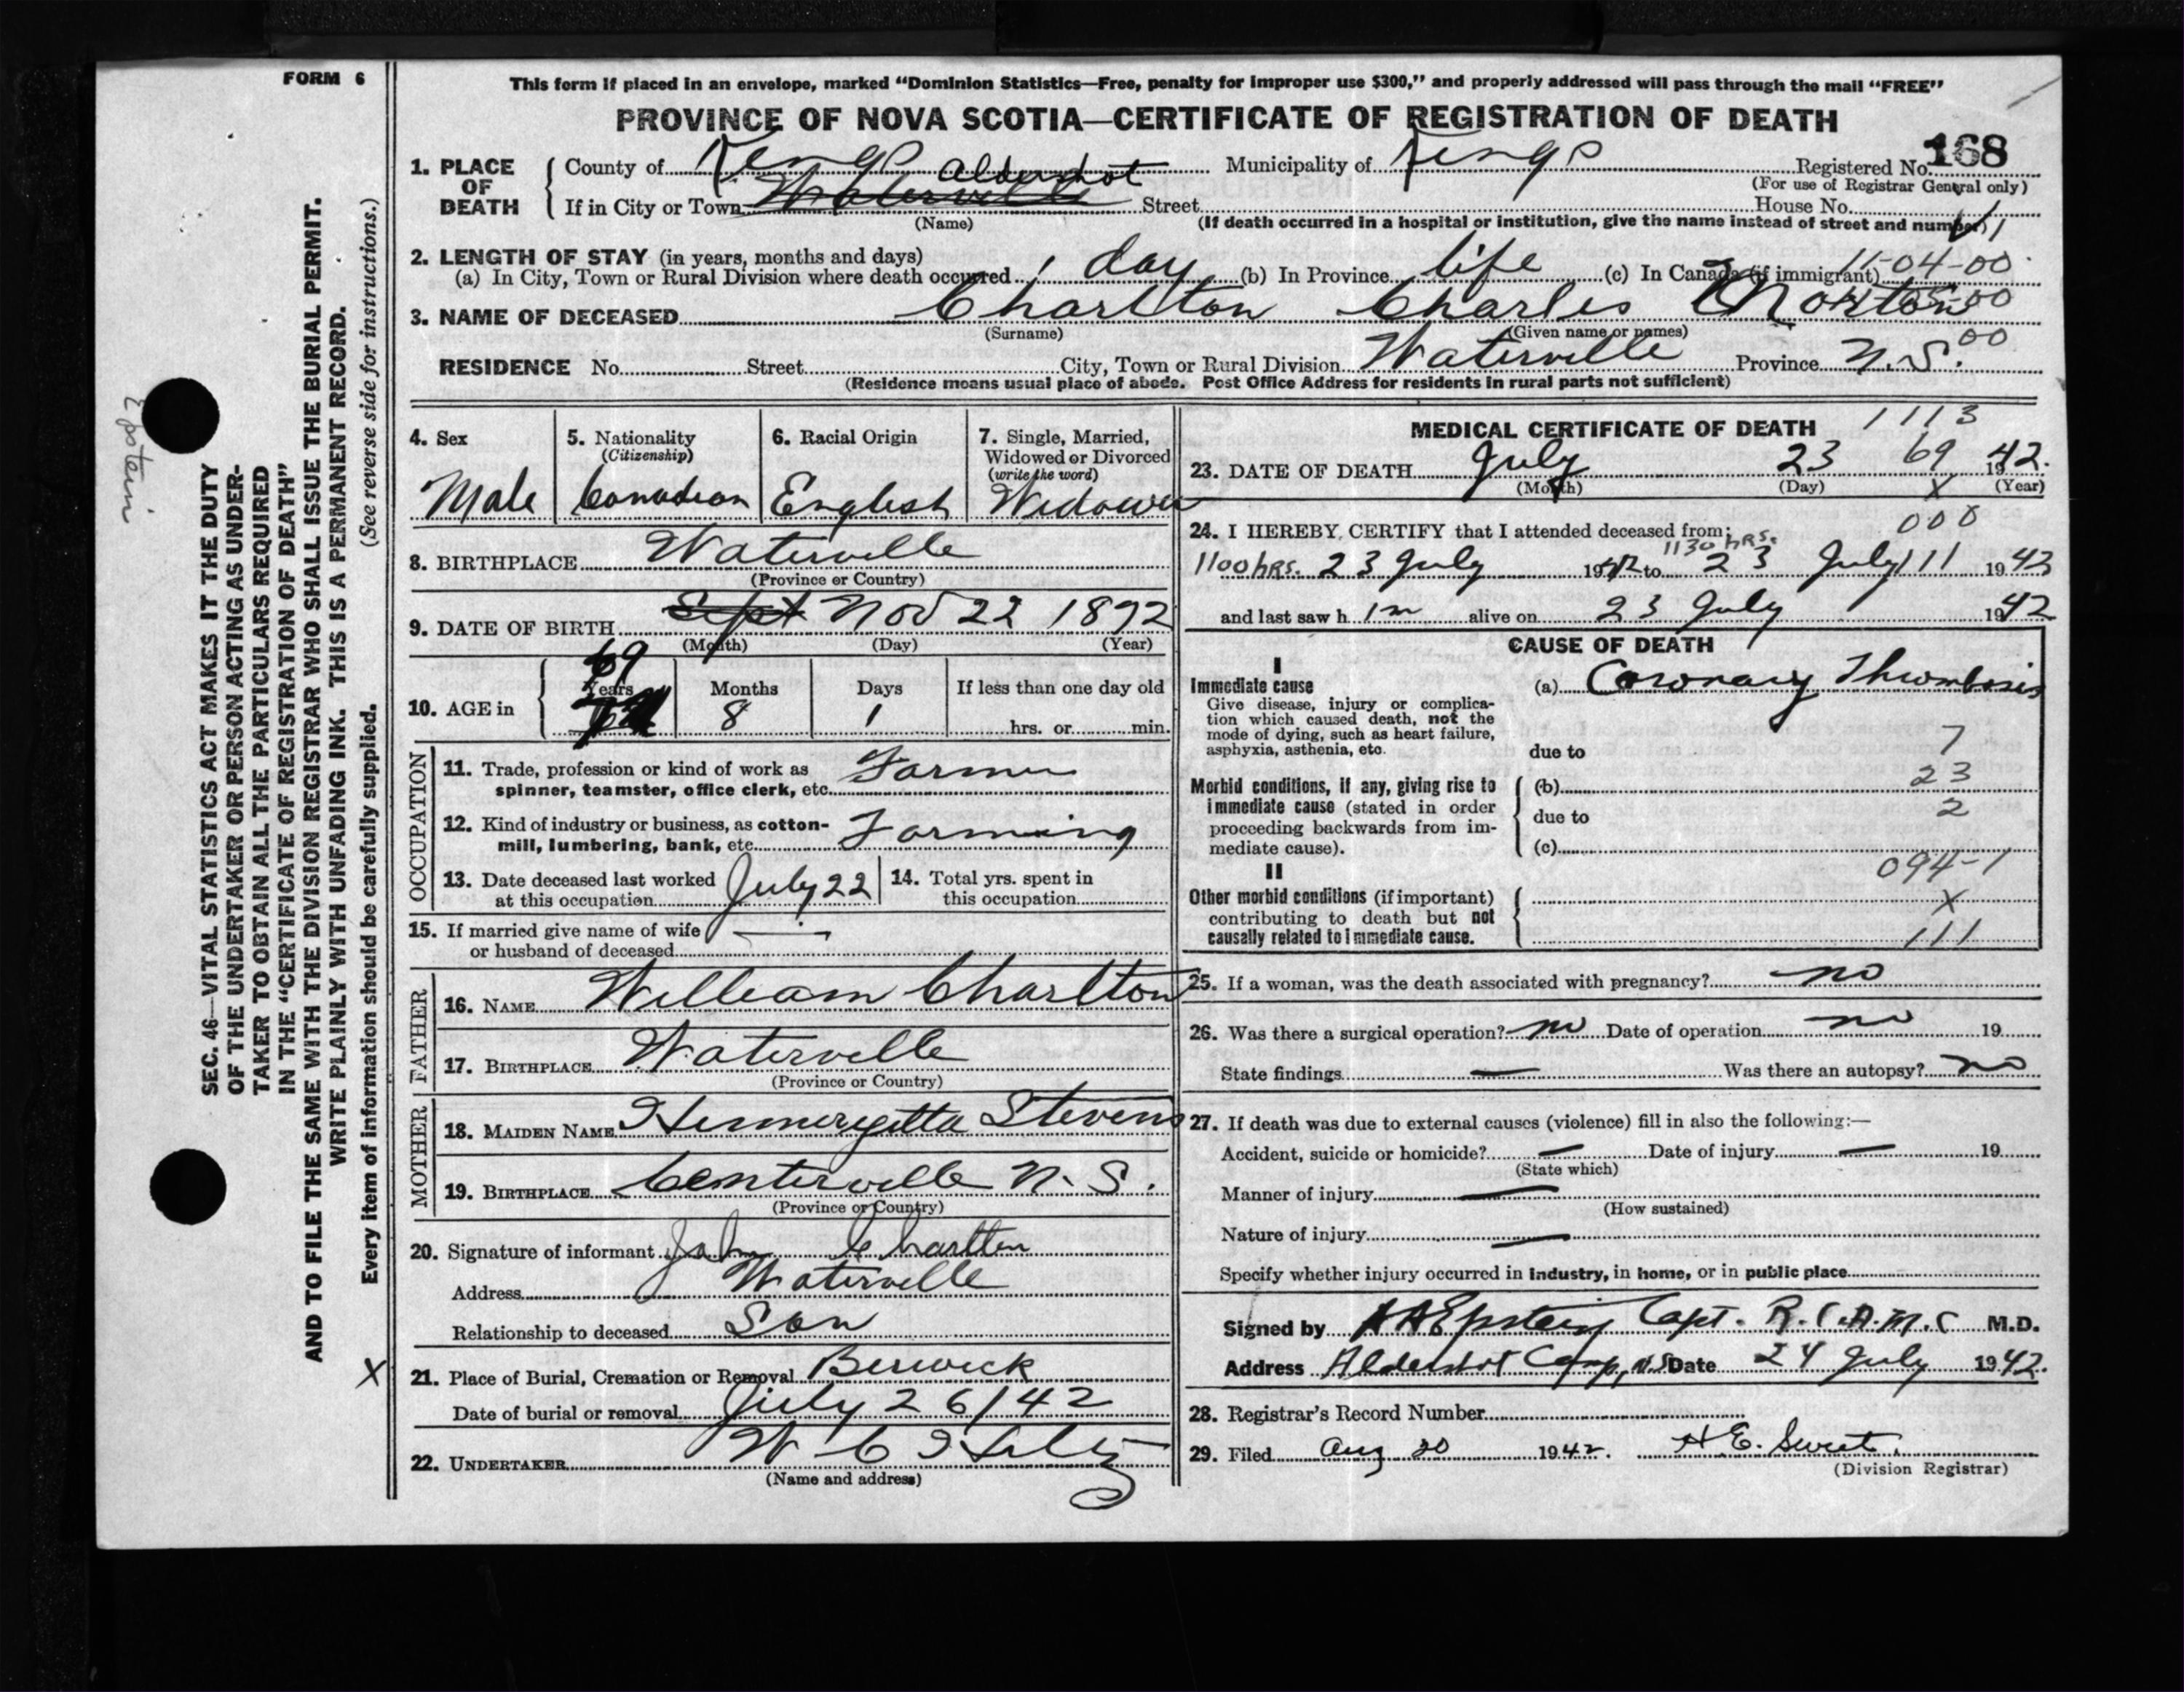 FORM 6
This form if placed in an envelope, marked "Dominion Statistics—Free, penalty for improper use $300," and properly addressed will pass through the mail "FREE"
PROVINCE OF NOVA SCOTIA—CERTIFICATE OF REGISTRATION OF DEATH
168
1. PLACE OF DEATH County of Kings Municipality of Kings Registered No.
(For use of Registrar General only)
Aldershot
If in City or Town Waterville Street House No.
(Name) (If death occurred in a hospital or institution, give the name instead of street and number)
2. LENGTH OF STAY (in years, months and days)
11-04-00
(a) In City, Town or Rural Division where death occurred 1 day (b) In Province life (c) In Canada (if immigrant)
3. NAME OF DECEASED Charlton Charles Norton
(Surname) (Given name or names)
00
RESIDENCE No. Street City, Town or Rural Division Waterville Province N.S.
(Residence means usual place of abode. Post Office Address for residents in rural parts not sufficient)
4. Sex
Male
5. Nationality
(Citizenship)
Canadian
6. Racial Origin
English
7. Single, Married, Widowed or Divorced
(write the word)
Widower
8. BIRTHPLACE Waterville
(Province or Country)
9. DATE OF BIRTH Sept Nov 22 1872
(Month) (Day) (Year)
10. AGE in
69
Years Months Days If less than one day old
8 1 hrs. or min.
OCCUPATION
11. Trade, profession or kind of work as Farmer
spinner, teamster, office clerk, etc.
12. Kind of industry or business, as cotton- Farming
mill, lumbering, bank, etc.
13. Date deceased last worked July 22 14. Total yrs. spent in
at this occupation this occupation
15. If married give name of wife —
or husband of deceased
FATHER
16. NAME William Charlton
17. BIRTHPLACE Waterville
(Province or Country)
MOTHER
18. MAIDEN NAME Stevens
19. BIRTHPLACE Centerville N.S.
(Province or Country)
20. Signature of informant John Charlton
Address Waterville
Relationship to deceased Son
21. Place of Burial, Cremation or Removal Berwick
Date of burial or removal July 26/42
22. UNDERTAKER W C
(Name and address)
1113
MEDICAL CERTIFICATE OF DEATH
69
23. DATE OF DEATH July 23 1942.
(Month) (Day) X (Year)
24. I HEREBY CERTIFY that I attended deceased from:
000
1130 hrs.
1100 hrs. 23 July 1942 to 23 July 111 1942
and last saw h im alive on 23 July 1942
CAUSE OF DEATH
I
Immediate cause (a) Coronary Thrombosis
Give disease, injury or complica-
tion which caused death, not the
mode of dying, such as heart failure,
asphyxia, asthenia, etc. due to
7
Morbid conditions, if any, giving rise to (b)
23
immediate cause (stated in order
proceeding backwards from im- due to
2
mediate cause). (c)
II
094-1
Other morbid conditions (if important)
X
contributing to death but not
causally related to immediate cause.
111
25. If a woman, was the death associated with pregnancy? no
26. Was there a surgical operation? no Date of operation no 19
State findings — Was there an autopsy? no
27. If death was due to external causes (violence) fill in also the following:—
Accident, suicide or homicide? — Date of injury — 19
(State which)
Manner of injury —
(How sustained)
Nature of injury —
Specify whether injury occurred in industry, in home, or in public place
Signed by Epstein Capt. R.C.A.M.C M.D.
Address Aldershot Camp, N.S. Date 24 July 1942.
28. Registrar's Record Number
29. Filed Aug 20 1942. H E. Sweet.
(Division Registrar)
Epstein
SEC. 46—VITAL STATISTICS ACT MAKES IT THE DUTY
OF THE UNDERTAKER OR PERSON ACTING AS UNDER-
TAKER TO OBTAIN ALL THE PARTICULARS REQUIRED
IN THE "CERTIFICATE OF REGISTRATION OF DEATH"
AND TO FILE THE SAME WITH THE DIVISION REGISTRAR WHO SHALL ISSUE THE BURIAL PERMIT.
WRITE PLAINLY WITH UNFADING INK. THIS IS A PERMANENT RECORD.
Every item of information should be carefully supplied. (See reverse side for instructions.)
X